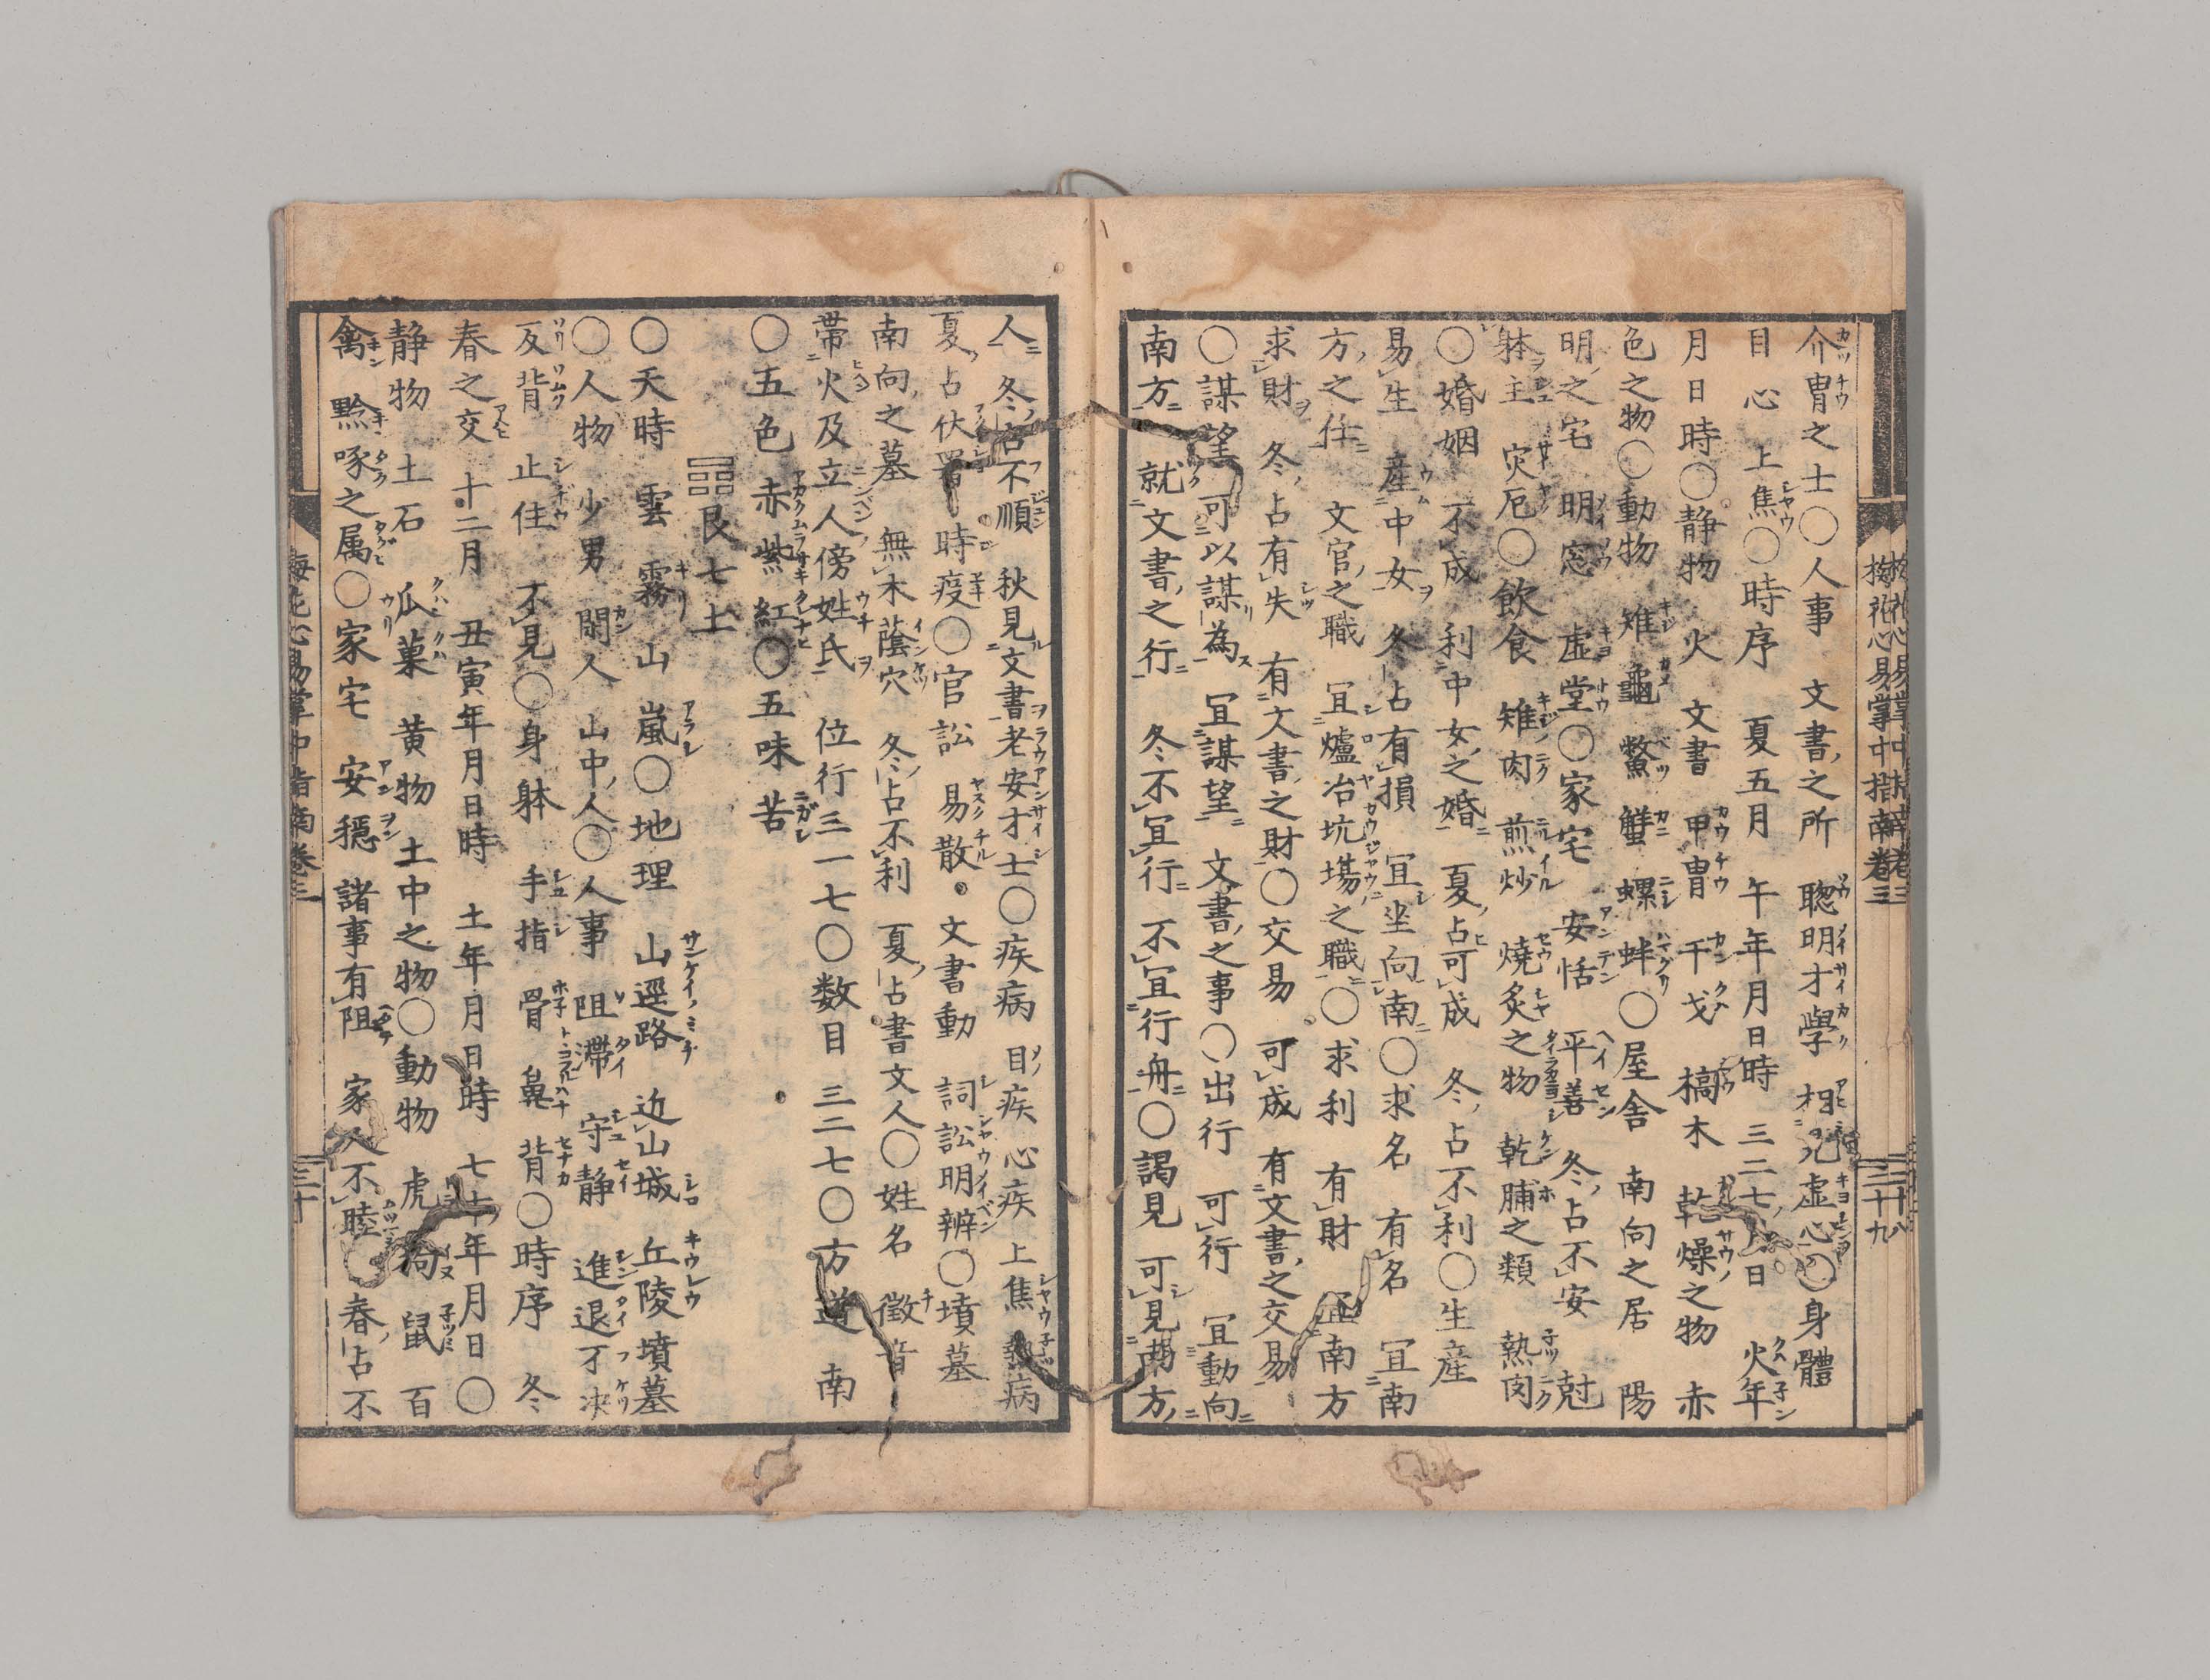 梅花心易掌中指南卷三 二十九
介冑之士○人事 文書之所 聰明才學 相見虚心○身體
目 心 上焦○時序 夏五月 午年月日時 三二七月日 火年
月日時○静物 火 文書 甲冑 干戈 槁木 乾燥之物 赤
色之物○動物 雉 龜 鱉 蟹 螺 蚌○屋舎 南向之居 陽
明之宅 明窓 虚堂○家宅 安恬 平善 冬占不安 尅
躰主 灾厄○飲食 雉肉 煎炒 燒炙之物 乾脯之類 熱肉
○婚姻 不成 利中女之婚 夏占可成 冬占不利○生産
易生 産中女 冬占有損 冝坐向南○求名 有名 冝南
方之任 文官之職 冝爐冶坑塲之職○求利 有財 冝南方
求財 冬占有失 有文書之財○交易 可成 有文書之交易
○謀望 可以謀為 冝謀望 文書之事○出行 可行 冝動向
南方 就文書之行 冬不冝行 不冝行舟○謁見 可見南方
人 冬占不順 秋見文書老安才士○疾病 目疾 心疾 上焦 熱病
夏占伏暑 時疫○官訟 易散 文書動 詞訟明辨○墳墓
南向之墓 無木蔭穴 冬占不利 夏占書文人○姓名 徴音
帶火及立人傍姓氏 位行三一七○数目 三二七○方道 南
○五色 赤紫紅○五味 苦
☶艮七土
○天時 雲 霧 山嵐○地理 山逕路 近山城 丘陵 墳墓
○人物 少男 閑人 山中人○人事 阻滯 守静 進退不决
反背 止住 不見○身躰 手指 骨 鼻 背○時序 冬
春之交 十二月 丑寅年月日時 土年月日時 七七年月日○
静物 土石 瓜菓 黄物 土中之物○動物 虎 狗 鼠 百
禽 黔啄之属○家宅 安穏 諸事有阻 家人不睦○春占不
梅花心易掌中指南卷三 三十